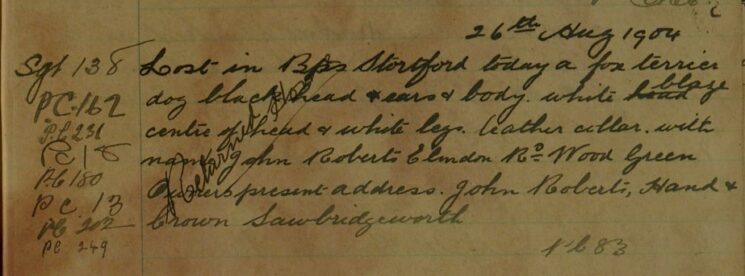 26th Aug 1904
Sgt 138 Lost in Bps Stortford today a fox terrier
PC 162 dog black head & ears & body. white blaze
PC 231 centre of head & white legs. leather collar. with
PC 18 name John Roberts Elmdon Rd. Wood Green
PC 180 Owners present address. John Roberts, Hand &
PC 13 Crown Sawbridgeworth
PC 202
PC 249
PC 83
Returned